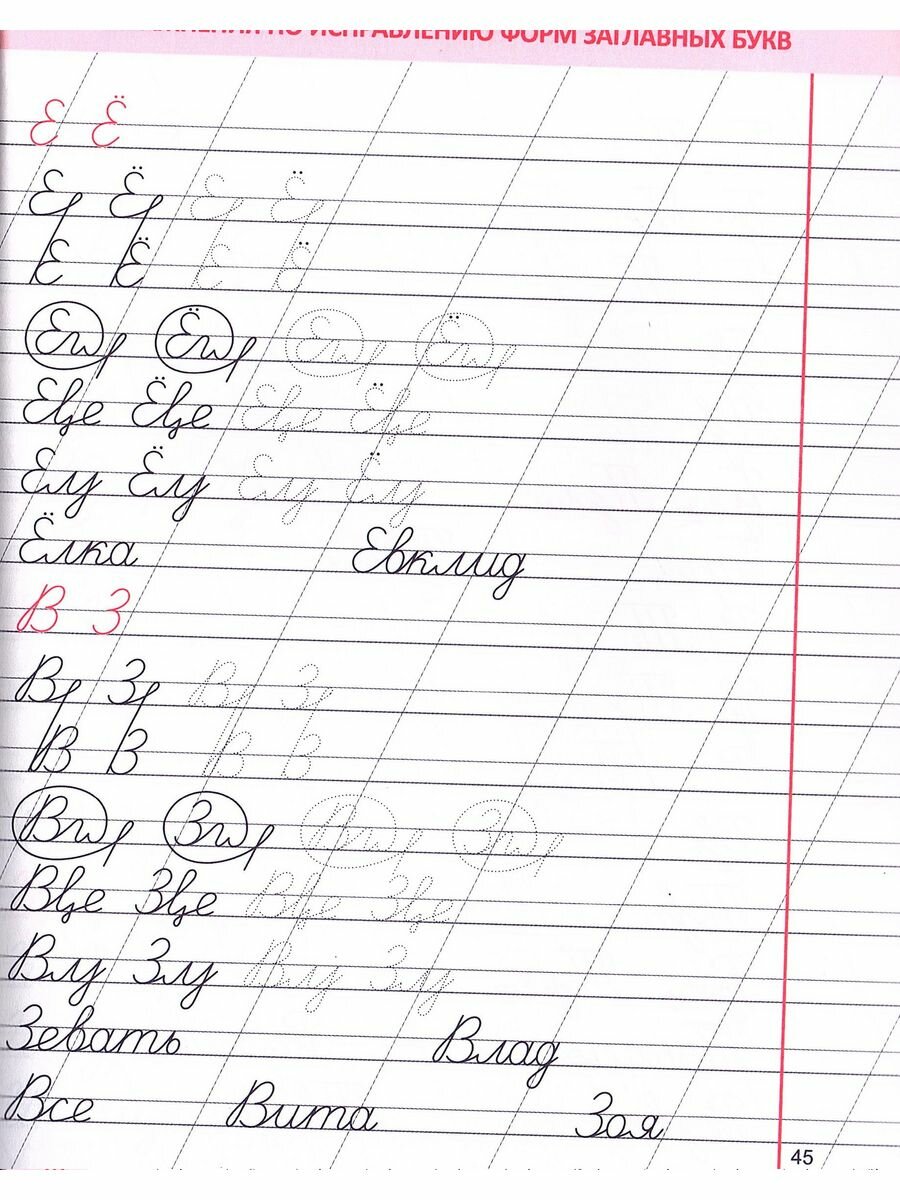 ПО ИСПРАВЛЕНИЮ ФОРМ ЗАГЛАВНЫХ БУКВ
Е Ё
Ер Ёр Ер Ёр
Е Ё Е Ё
Еш Ёш Еш Ёш
Еце Ёце Еце Ёце
Елу Ёлу Елу Ёлу
Ёлка Евклид
В З
Вр Зр Вр Зр
В В В В
Вш Зш Вш Зш
Вце Зце Вце Зце
Влу Злу Влу Злу
Зевать Влад
Все Вита Зоя
45